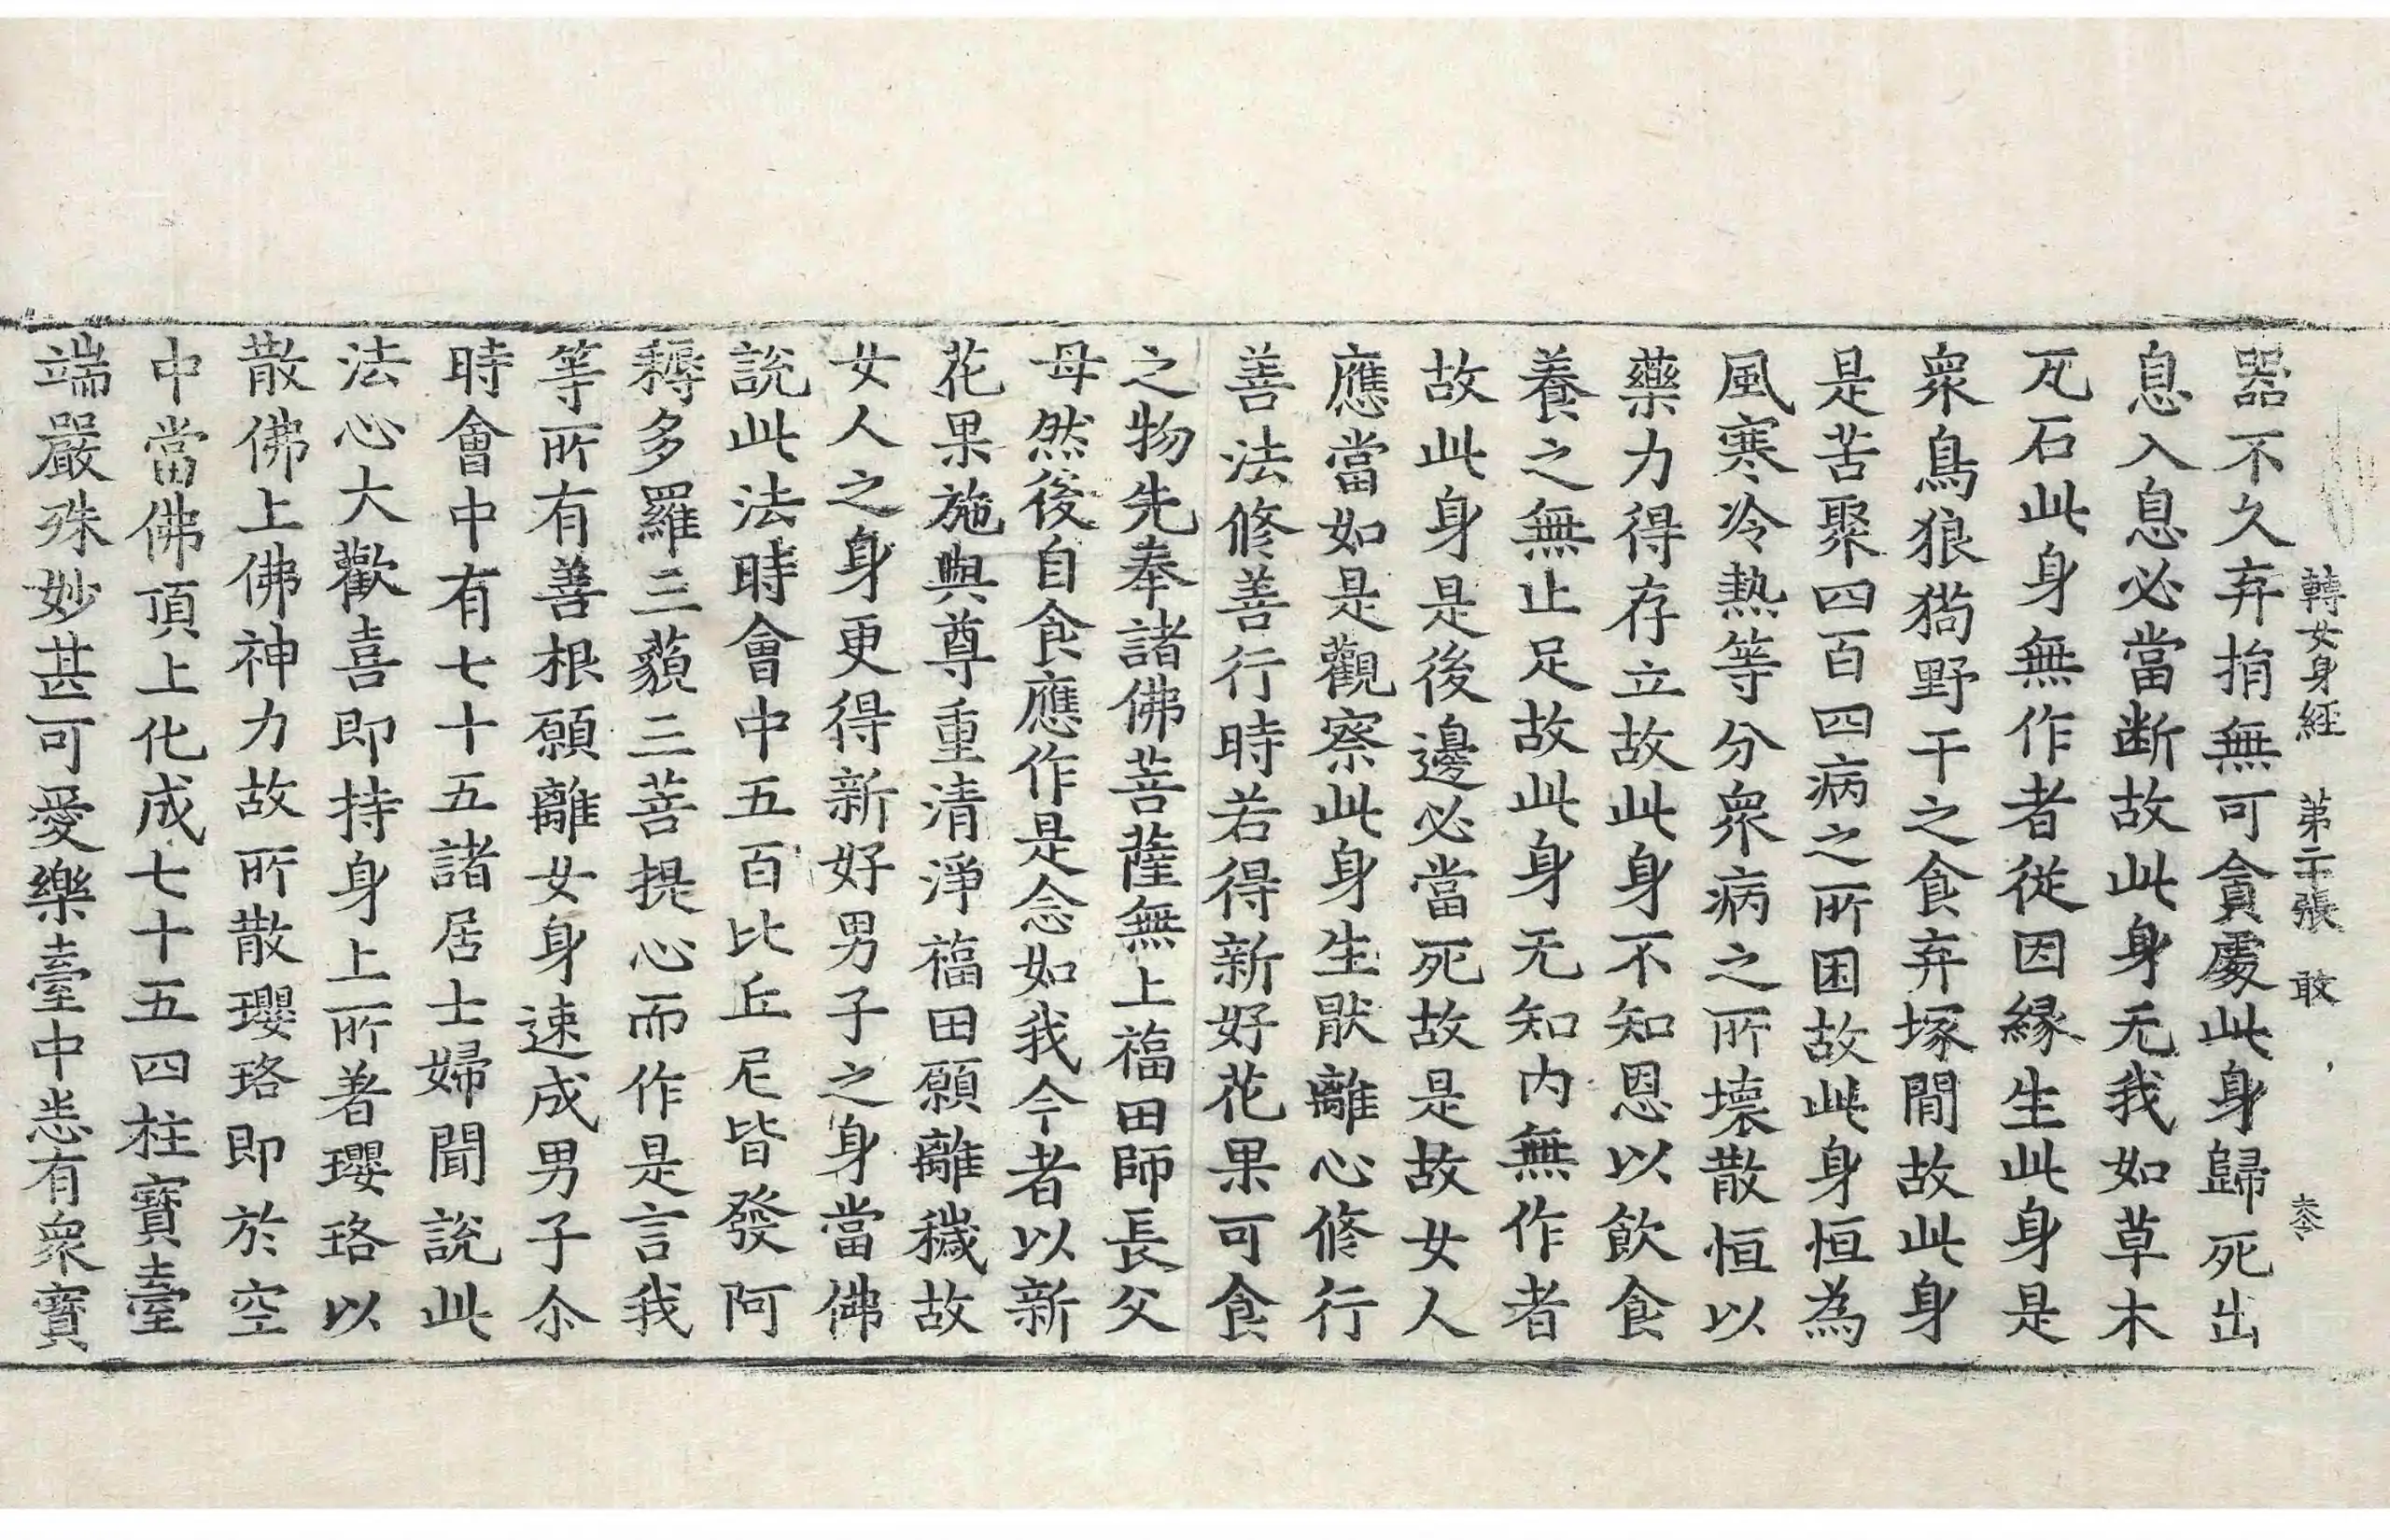 轉女身経　第二十張　敢
器不久弃捐無可貪處此身歸死出
息入息必當断故此身无我如草木
瓦石此身無作者從因緣生此身是
衆鳥狼猗野干之食弃塚閒故此身
是苦聚四百四病之所困故此身恒為
風寒冷热等分衆病之所壞散恒以
藥力得存立故此身不知恩以飲食
養之無止足故此身无知内無作者
故此身是後邊必當死故是故女人
應當如是觀察此身生猒離心修行
善法修善行時若得新好花果可食
之物先奉諸佛菩薩無上福田師長父
母然後自食應作是念如我今者以新
花果施與尊重清淨福田願離穢故
女人之身更得新好男子之身當佛
說此法時會中五百比丘尼皆發阿
耨多羅三藐三菩提心而作是言我
等所有善根願離女身速成男子尒
時會中有七十五諸居士婦聞說此
法心大歡喜即持身上所著瓔珞以
散佛上佛神力故所散瓔珞即於空
中當佛頂上化成七十五四柱寶臺
端嚴殊妙甚可愛樂臺中悉有衆寶